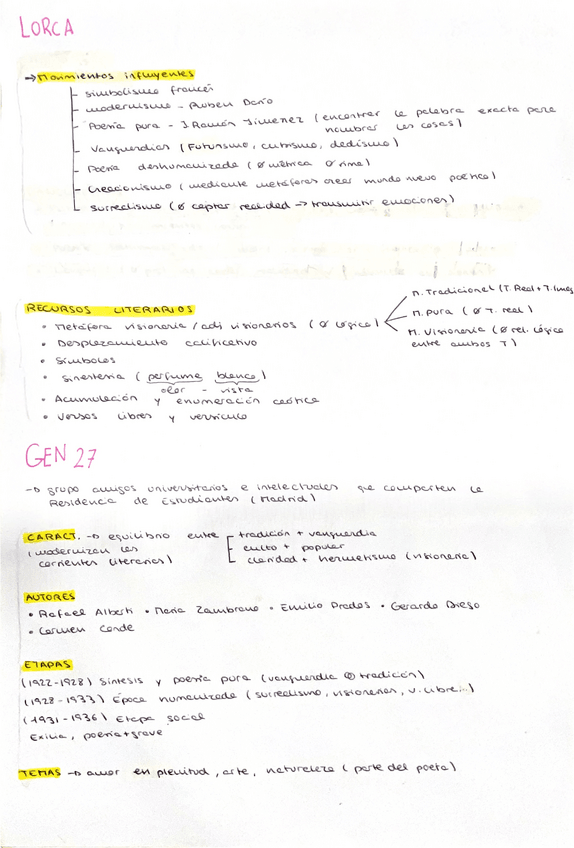 LORCA
→ Movimientos influyentes
simbolismo francés
modernismo - Rubén Darío
Poesía pura - J.Ramón Jimenez (encontrar la palabra exacta para
nombrar las cosas)
Vanguardias (Futurismo, cubismo, dadismo)
Poesía deshumanizada (Ø métrica Ø rima)
Creacionismo (mediante metáforas crear mundo nuevo poético)
Surrealismo (Ø captar realidad → transmitir emociones)
RECURSOS LITERARIOS
• Metáfora visionaria / adj visionarios (Ø lógica)
M. Tradicional (T. Real + T. Imag
M. pura (Ø T. real)
M. Visionaria (Ø rel. lógica
entre ambos T)
• Desplazamiento calificativo
• Símbolos
• Sinestesia (perfume blanco)
olor - vista
• Acumulación y enumeración caótica
• Versos libres y versículo
GEN 27
→ grupo amigos universitarios e intelectuales que comparten la
Residencia de Estudiantes (Madrid)
CARACT. → equilibrio entre tradición + vanguardia
(modernizan las culto + popular
corrientes literarias) claridad + hermetismo (visionaria)
AUTORES
• Rafael Alberti • María Zambrano • Emilio Prados • Gerardo Diego
• Carmen Conde
ETAPAS
(1922-1928) Síntesis y poesía pura (vanguardia tradición)
(1928-1933) Época humanizada (surrealismo, visionarias, v. libre...)
(1931-1936) Etapa social
Exilia, poesía + grave
TEMAS → amor en plenitud, arte, naturaleza (parte del poeta)